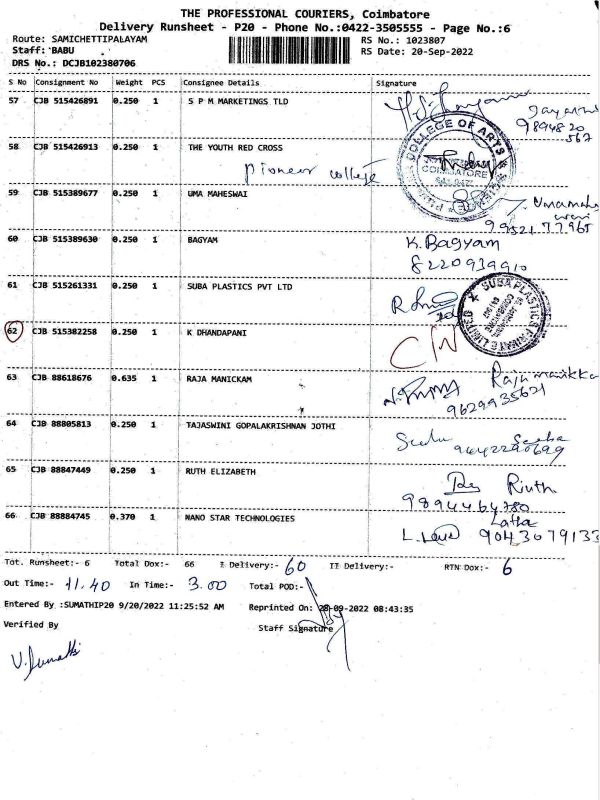 THE PROFESSIONAL COURIERS, Coimbatore
Delivery Runsheet - P20 - Phone No.:0422-3505555 - Page No.:6
Route: SAMICHETTIPALAYAM RS No.: 1023807
Staff: BABU RS Date: 20-Sep-2022
DRS No.: DCJB102380706
S No Consignment No Weight PCS Consignee Details Signature
57 CJB 515426891 0.250 1 S P M MARKETINGS TLD
9894820
567
58 CJB 515426913 0.250 1 THE YOUTH RED CROSS
Pioneer college
COLLEGE OF ARTS
COIMBATORE
59 CJB 515389677 0.250 1 UMA MAHESWAI
9952177965
60 CJB 515389630 0.250 1 BAGYAM K. Bagyam
8220939910
61 CJB 515261331 0.250 1 SUBA PLASTICS PVT LTD
SUBA PLASTICS PRIVATE LIMITED
62 CJB 515382258 0.250 1 K DHANDAPANI C/N
63 CJB 88618676 0.635 1 RAJA MANICKAM
9629935621
64 CJB 88805813 0.250 1 TAJASWINI GOPALAKRISHNAN JOTHI
65 CJB 88847449 0.250 1 RUTH ELIZABETH
9894464780
66 CJB 88884745 0.370 1 NANO STAR TECHNOLOGIES Latha
9043079133
Tot. Runsheet:- 6 Total Dox:- 66 I Delivery:- 60 II Delivery:- RTN Dox:- 6
Out Time:- 11.40 In Time:- 3.00 Total POD:-
Entered By :SUMATHIP20 9/20/2022 11:25:52 AM Reprinted On: 28-09-2022 08:43:35
Verified By Staff Signature
V. Sumathi